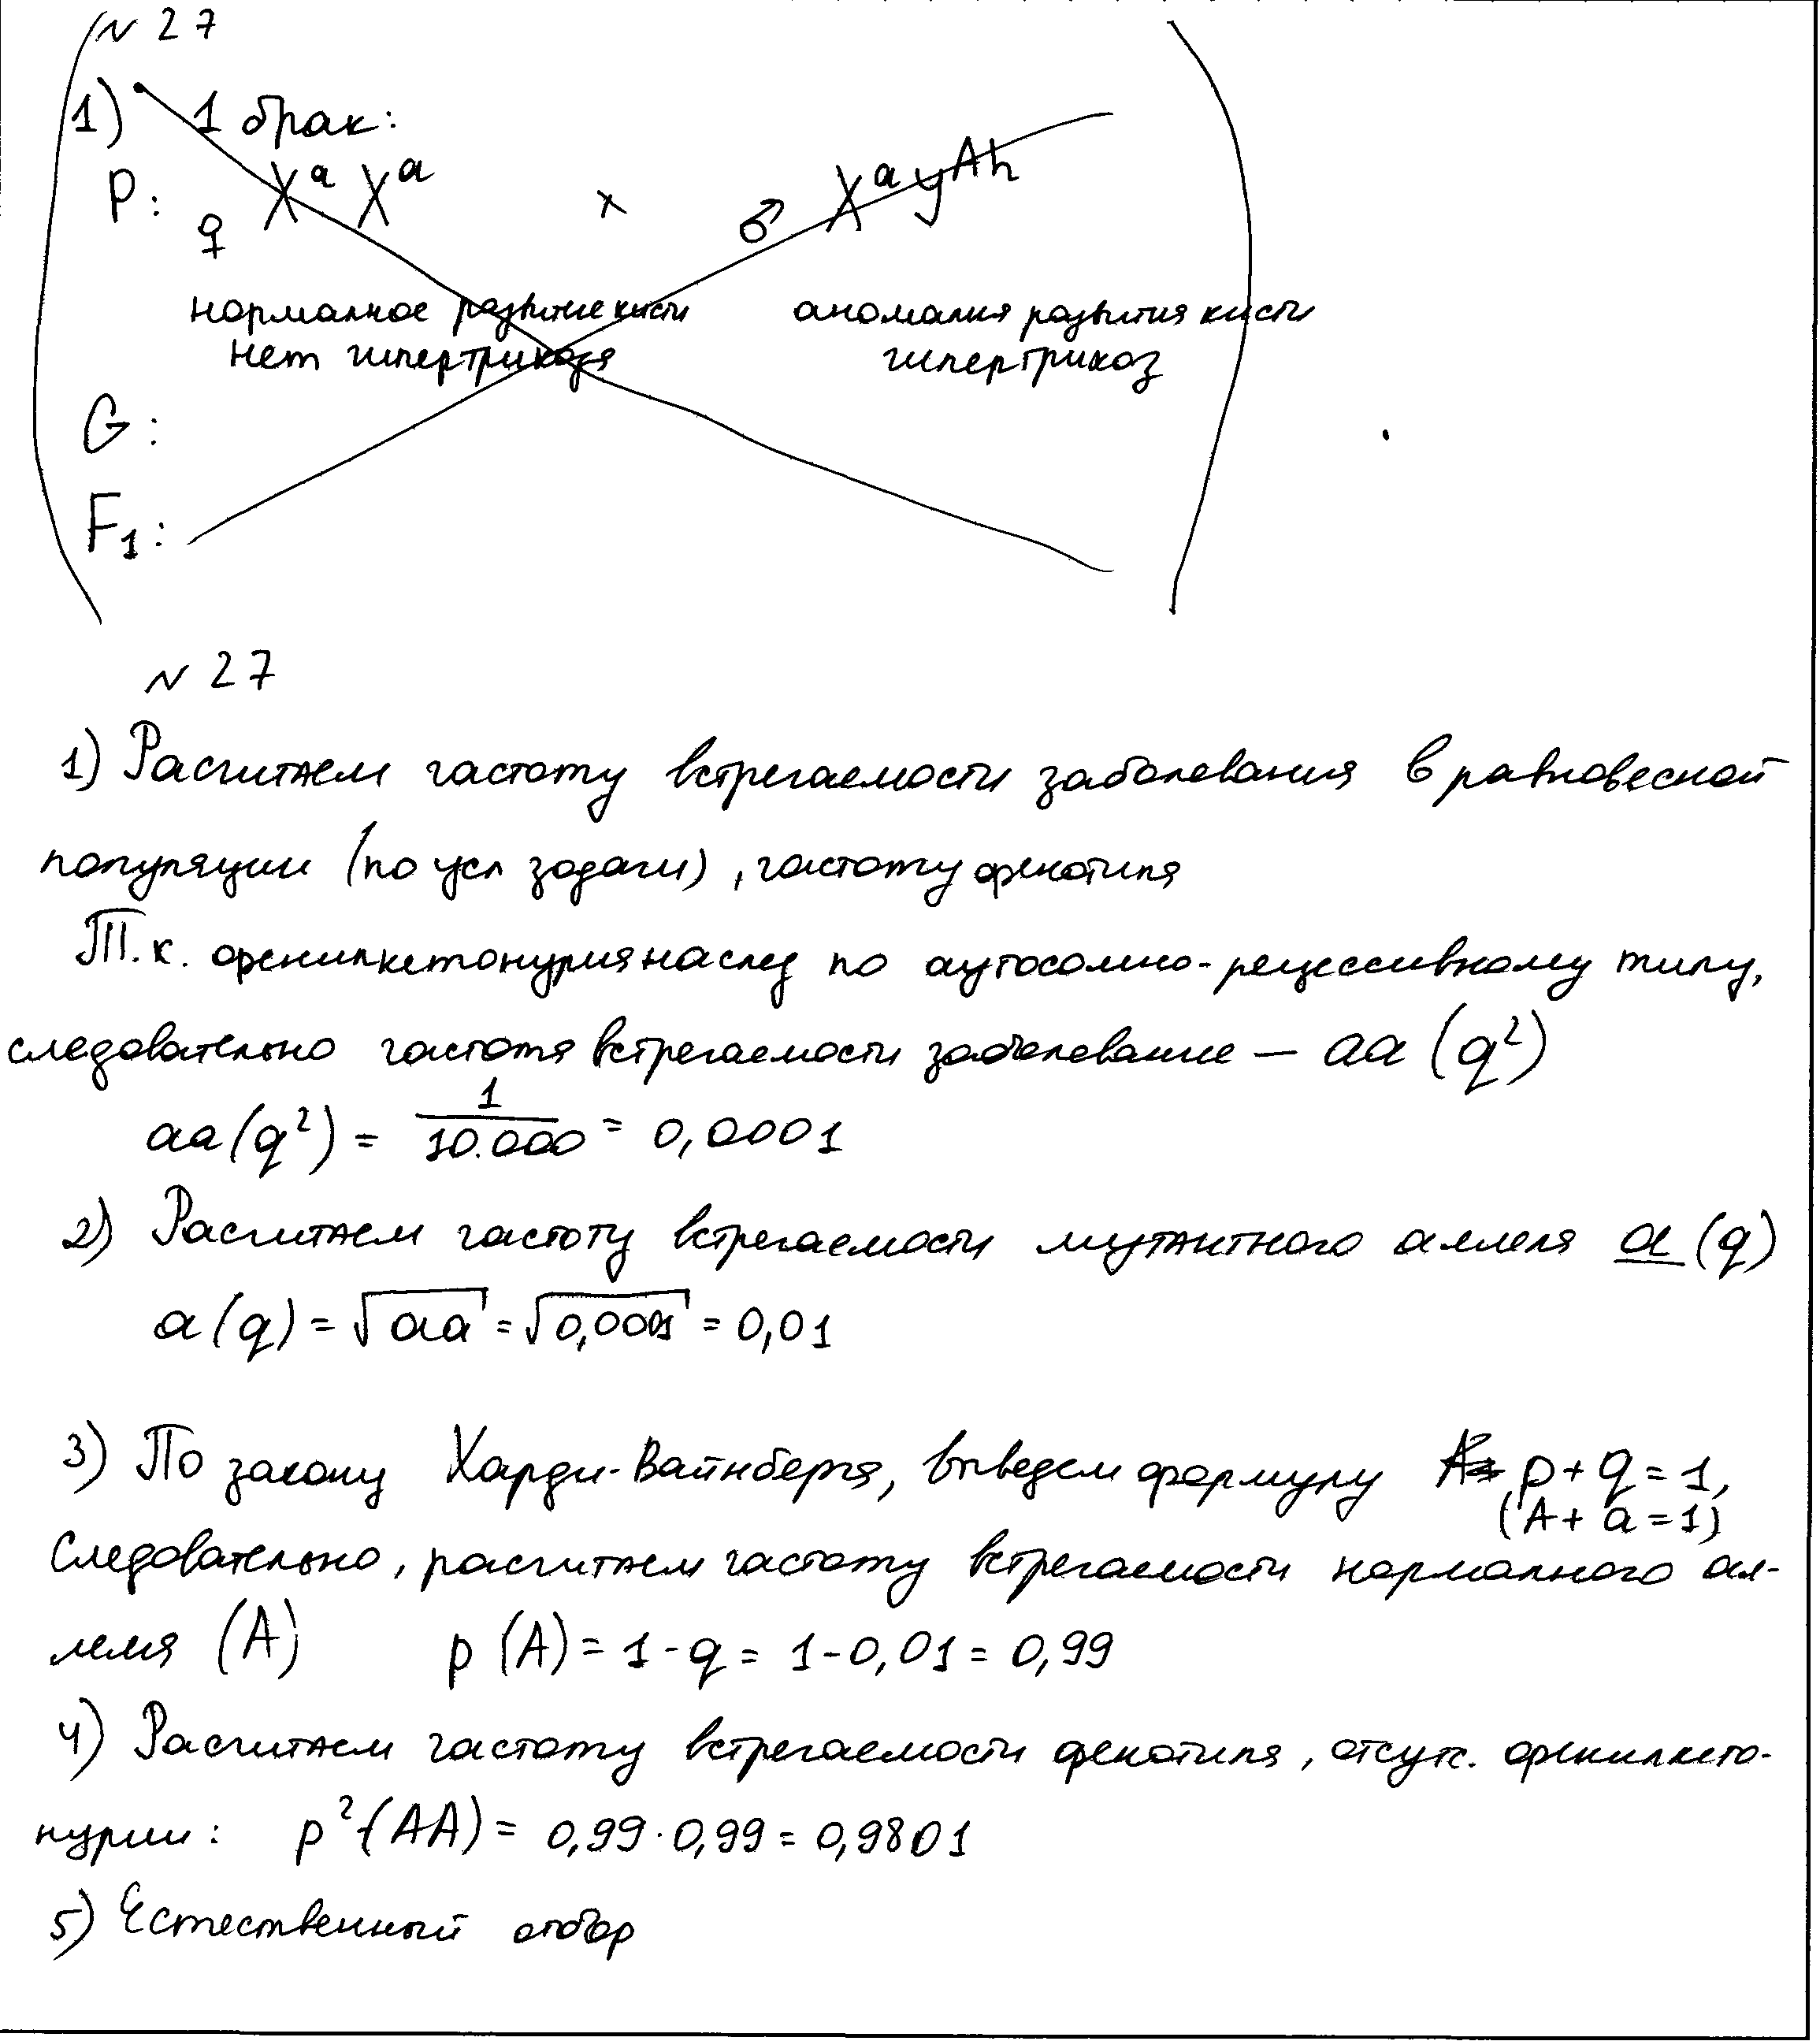 № 27
1) 1 брак:
P: ♀ X^a X^a × ♂ X^a y^Ah
нормалное развитие кисти аномалия развития кисти
нет гипертрихоза гипертрихоз
G:
F₁:
№ 27
1) Расчитаем частоту встречаемости заболевания в равновесной
популяции (по усл задачи), частоту фенотипа
Т.к. фенилкетонурия наслед по аутосомно-рецессивному типу,
следовательно частота встречаемости заболевание — aa (q²)
aa (q²) = 1/10.000 = 0,0001
2) Расчитаем частоту встречаемости мутантного аллеля a (q)
a (q) = √aa = √0,0001 = 0,01
3) По закону Харди-Вайнберга, выведем формулу p + q = 1,
(A + a = 1)
Следовательно, расчитаем частоту встречаемости нормалного ал-
леля (A) p (A) = 1 - q = 1 - 0,01 = 0,99
4) Расчитаем частоту встречаемости фенотипа, отсутс. фенилкето-
нурии: p² (AA) = 0,99 · 0,99 = 0,9801
5) Естественный отбор